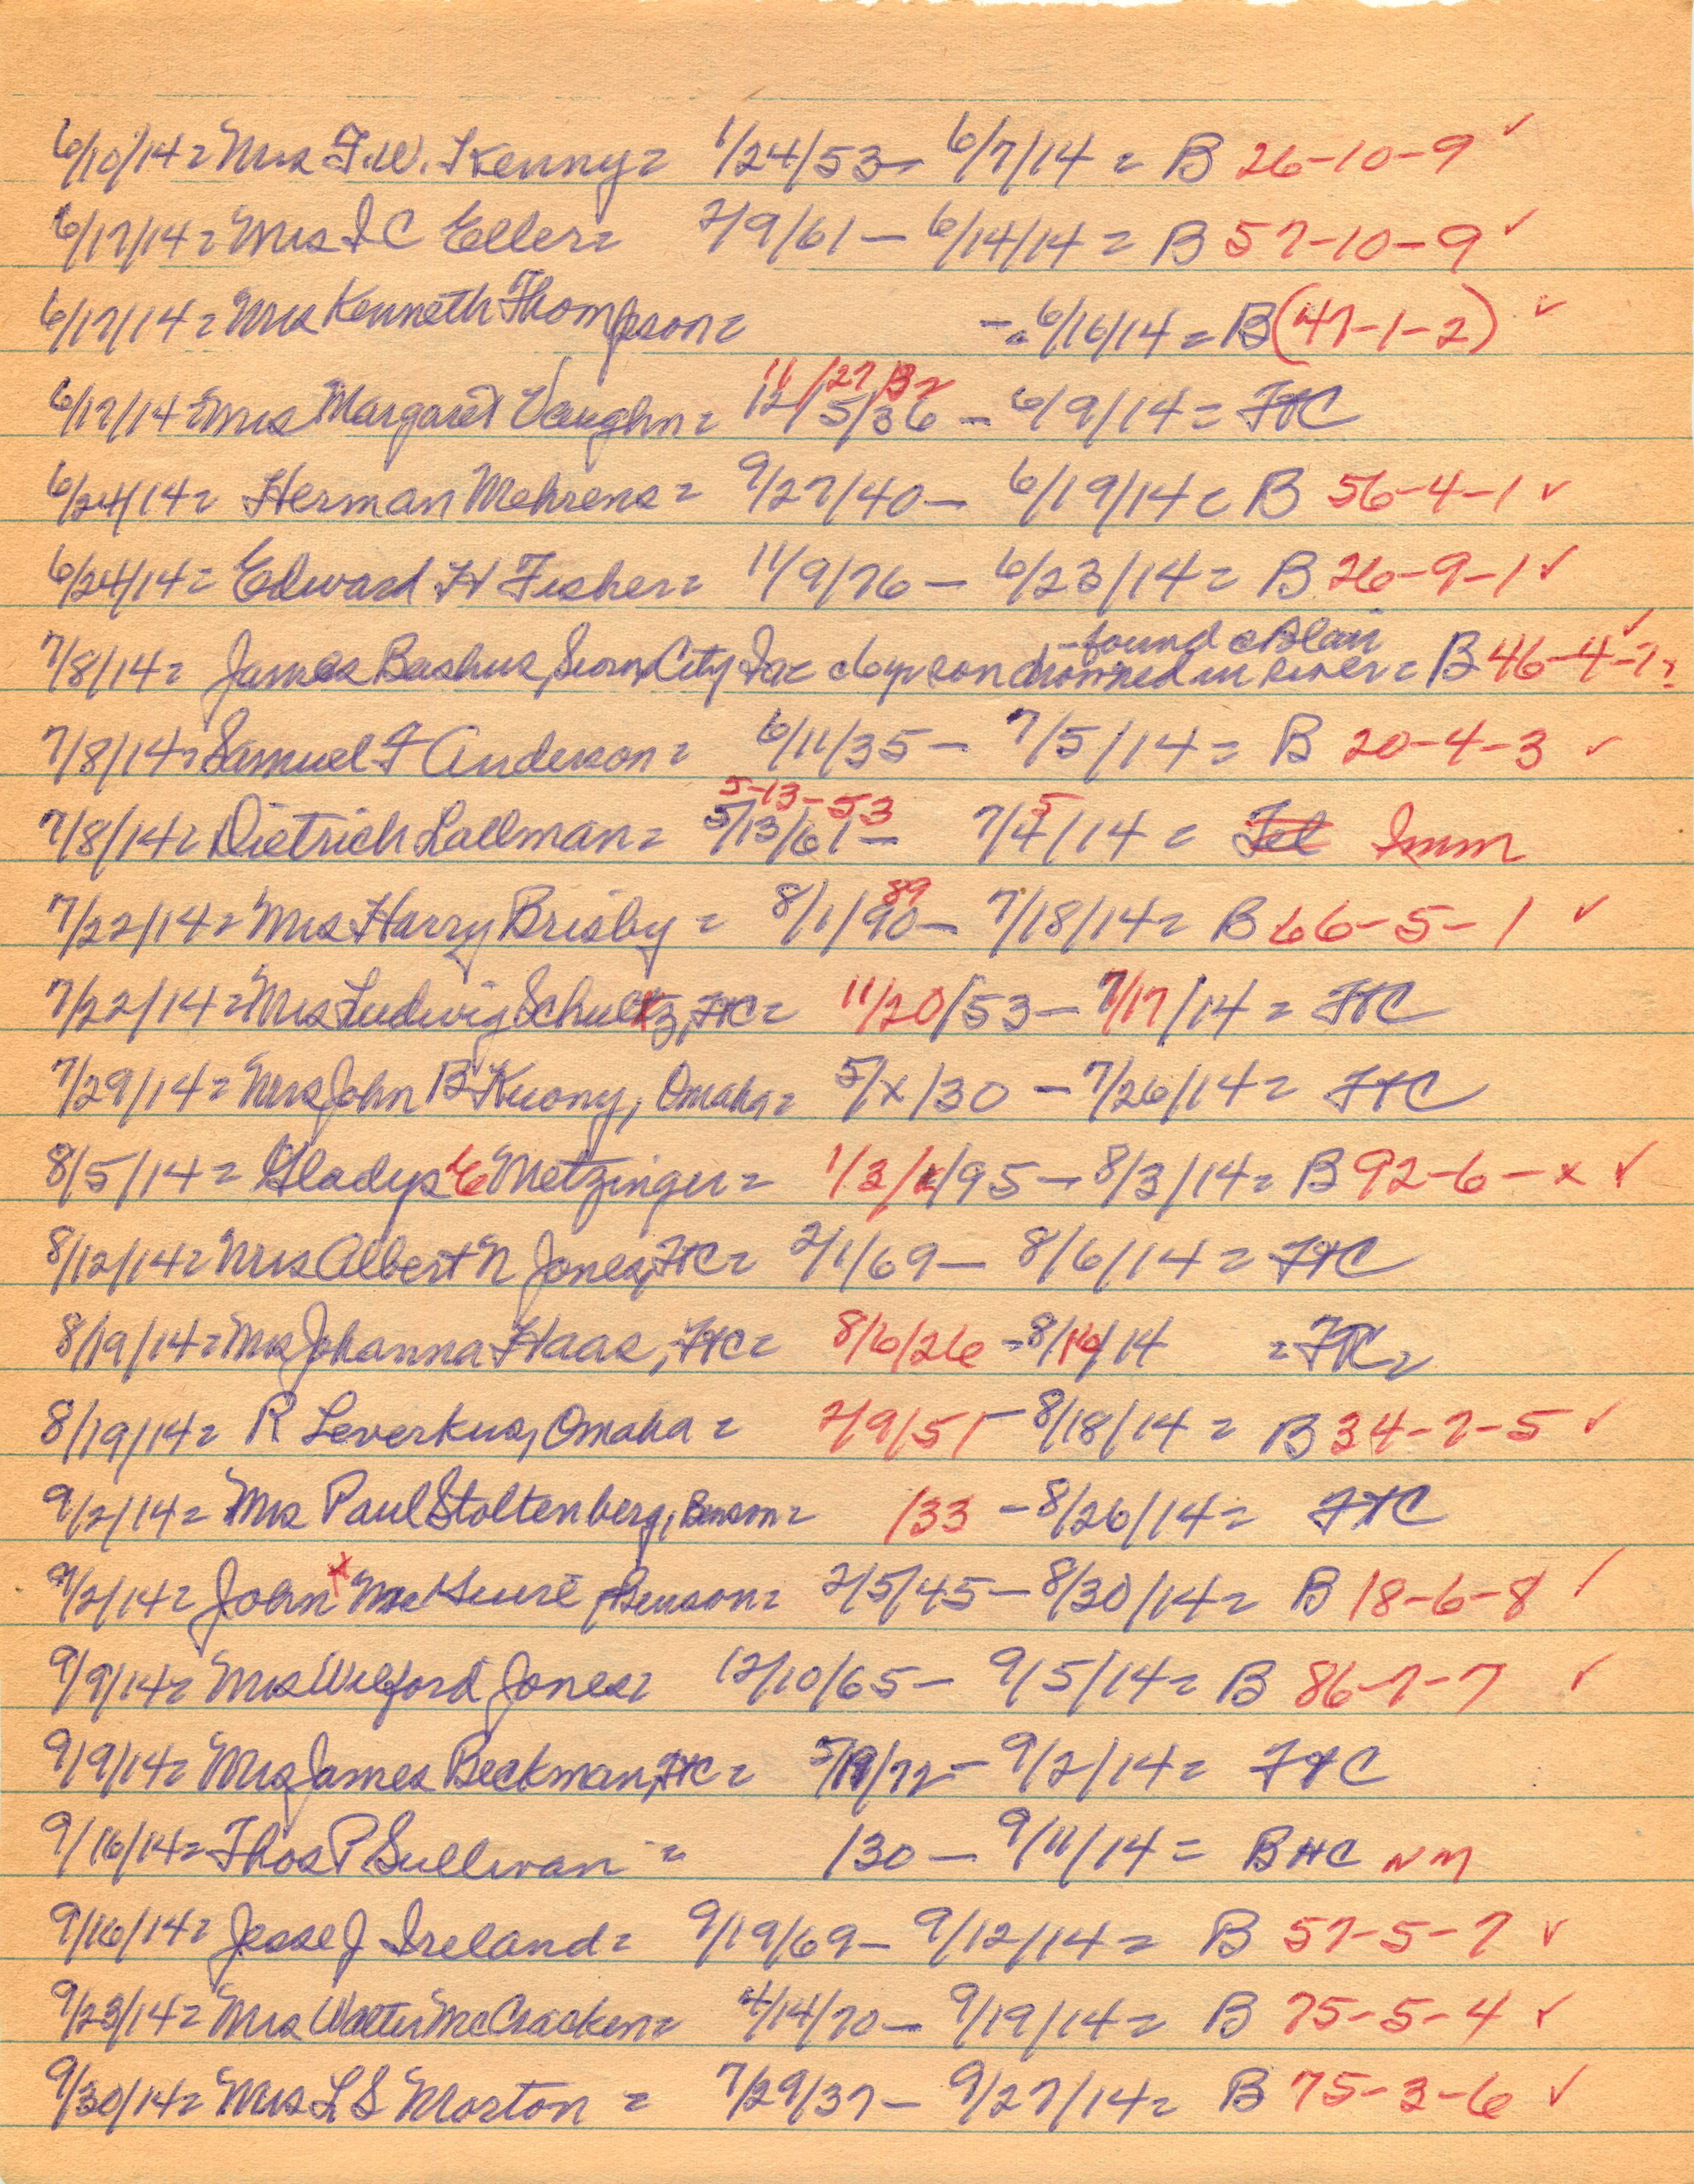 6/10/14= Mrs F.W. Kenny= 1/24/53- 6/7/14 = B 26-10-9 ✓
6/17/14= Mrs I C Eller= 2/9/61 - 6/14/14 = B 57-10-9 ✓
6/17/14= Mrs Kenneth Thompson= - 6/16/14 = B (47-1-2) ✓
11/27/32
6/17/14= Mrs Margaret Vaughn= 12/5/36 - 6/9/14 = FtC
6/24/14= Herman Mehrens= 9/27/40- 6/19/14 = B 56-4-1 ✓
6/24/14= Edward H Fisher= 11/9/76 - 6/23/14 = B 26-9-1 ✓
-found @ Blair
7/8/14= James Bashus, Sioux City Ia= son drowned in river= B 46-4-7 ✓
7/8/14= Samuel F Anderson= 6/11/35- 7/5/14 = B 20-4-3 ✓
5-13-53 5
7/8/14= Dietrich Lallman= 5/13/61- 7/4/14 = Tel Imm
89
7/22/14= Mrs Harry Brisby = 8/1/90- 7/18/14= B 66-5-1 ✓
7/22/14= Mrs Ludwig Schultz, FtC= 11/20/53- 7/17/14 = FtC
7/29/14= Mrs John B Kuony, Omaha= 5/x/30 - 7/26/14= FtC
8/5/14= Gladys E Metzinger= 1/3/95- 8/3/14= B 92-6-x ✓
8/12/14= Mrs Albert N Jones, FtC= 2/1/69- 8/6/14 = FtC
8/19/14= Mrs Johanna Haas, FtC= 8/6/26 -8/16/14 =FtC=
8/19/14= R Leverkus, Omaha = 2/9/51 -8/18/14 = B 34-7-5 ✓
9/2/14= Mrs Paul Stoltenberg, Benson= /33 -8/26/14= FtC
9/2/14= John x Benson= 2/5/45-8/30/14= B 18-6-8 /
9/9/14= Mrs Wilford Jones= 12/10/65- 9/5/14= B 86-7-7 ✓
9/9/14= Mrs James Beckman, FtC= 5/19/72- 9/2/14= FtC
9/16/14= Thos P Sullivan = /30 - 9/11/14 = BHC NM
9/16/14= Jesse J Ireland= 9/19/69- 9/12/14 = B 57-5-7 ✓
9/23/14= Mrs Walter McCracken= 4/14/70- 9/19/14= B 75-5-4 ✓
9/30/14= Mrs L S Morton = 7/29/37- 9/27/14= B 75-3-6 ✓